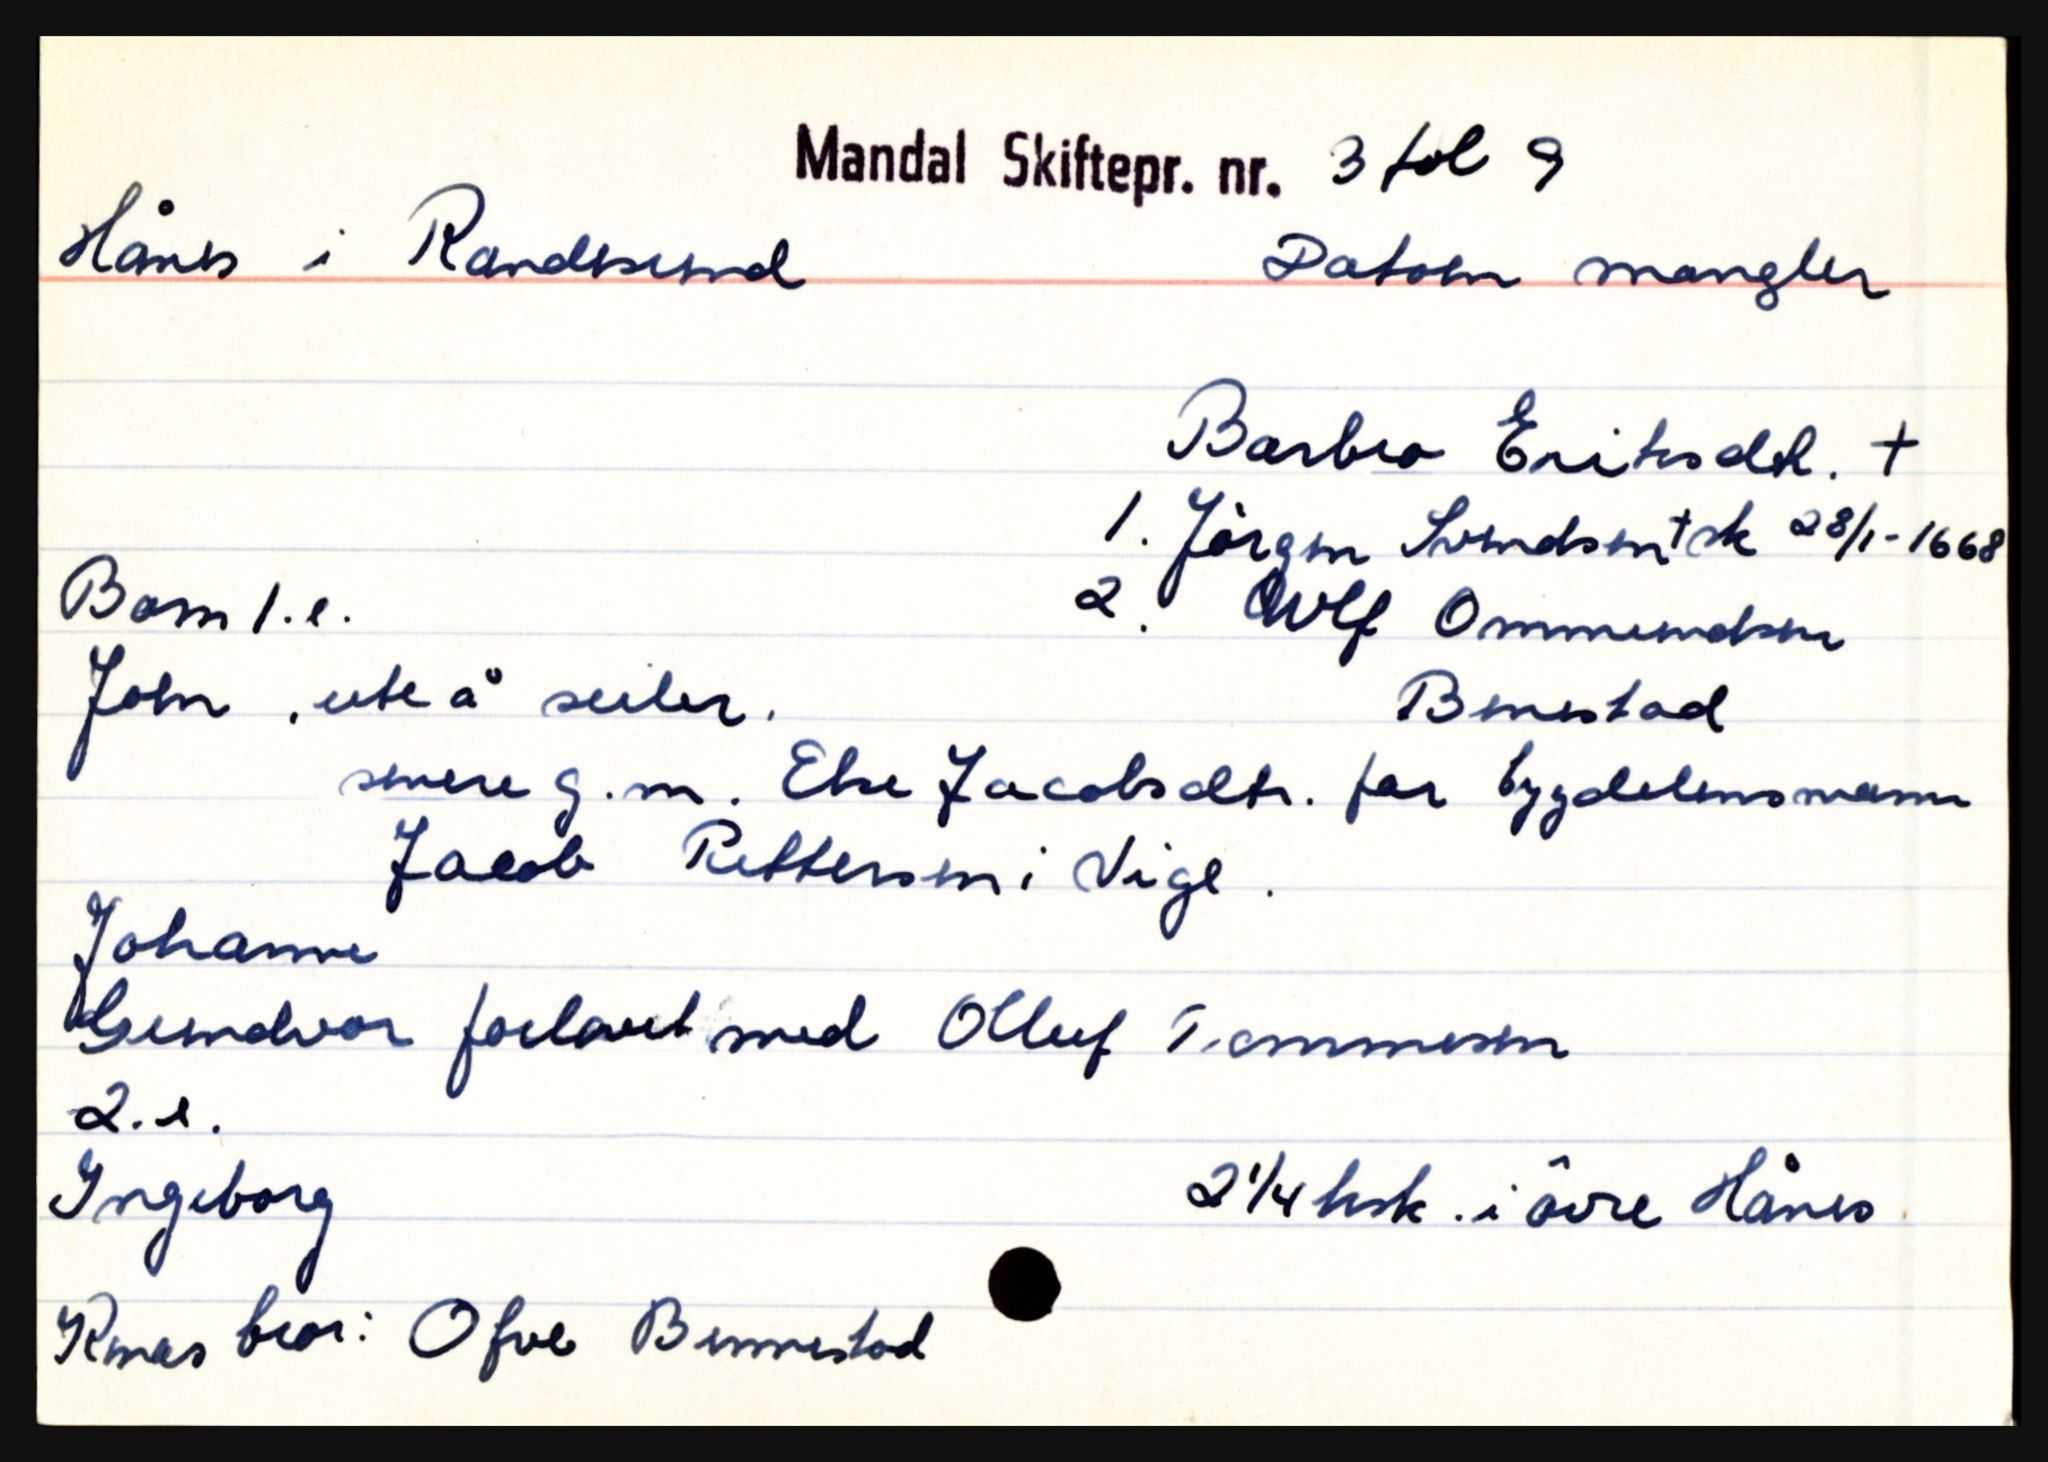 Mandal Skiftepr. nr. 3 fol 9
Hånes i Randesund Datoen mangler
Barbro Eriksdtr. +
1. Jörgen Svendsen + sk 28/1-1668
Barn 1.e. 2. Ommundsen
John, ute å seiler. Benestad
senere g.m. Else Jacobsdtr. far bygdelensmann
Jacob Pettersen i Vige.
Johanne
Gundvor forlovet med Olluf Tommesen
2.e.
Ingeborg 2 1/4 hsk. i övre Hånes
Knas bror: Ofve Bennestad